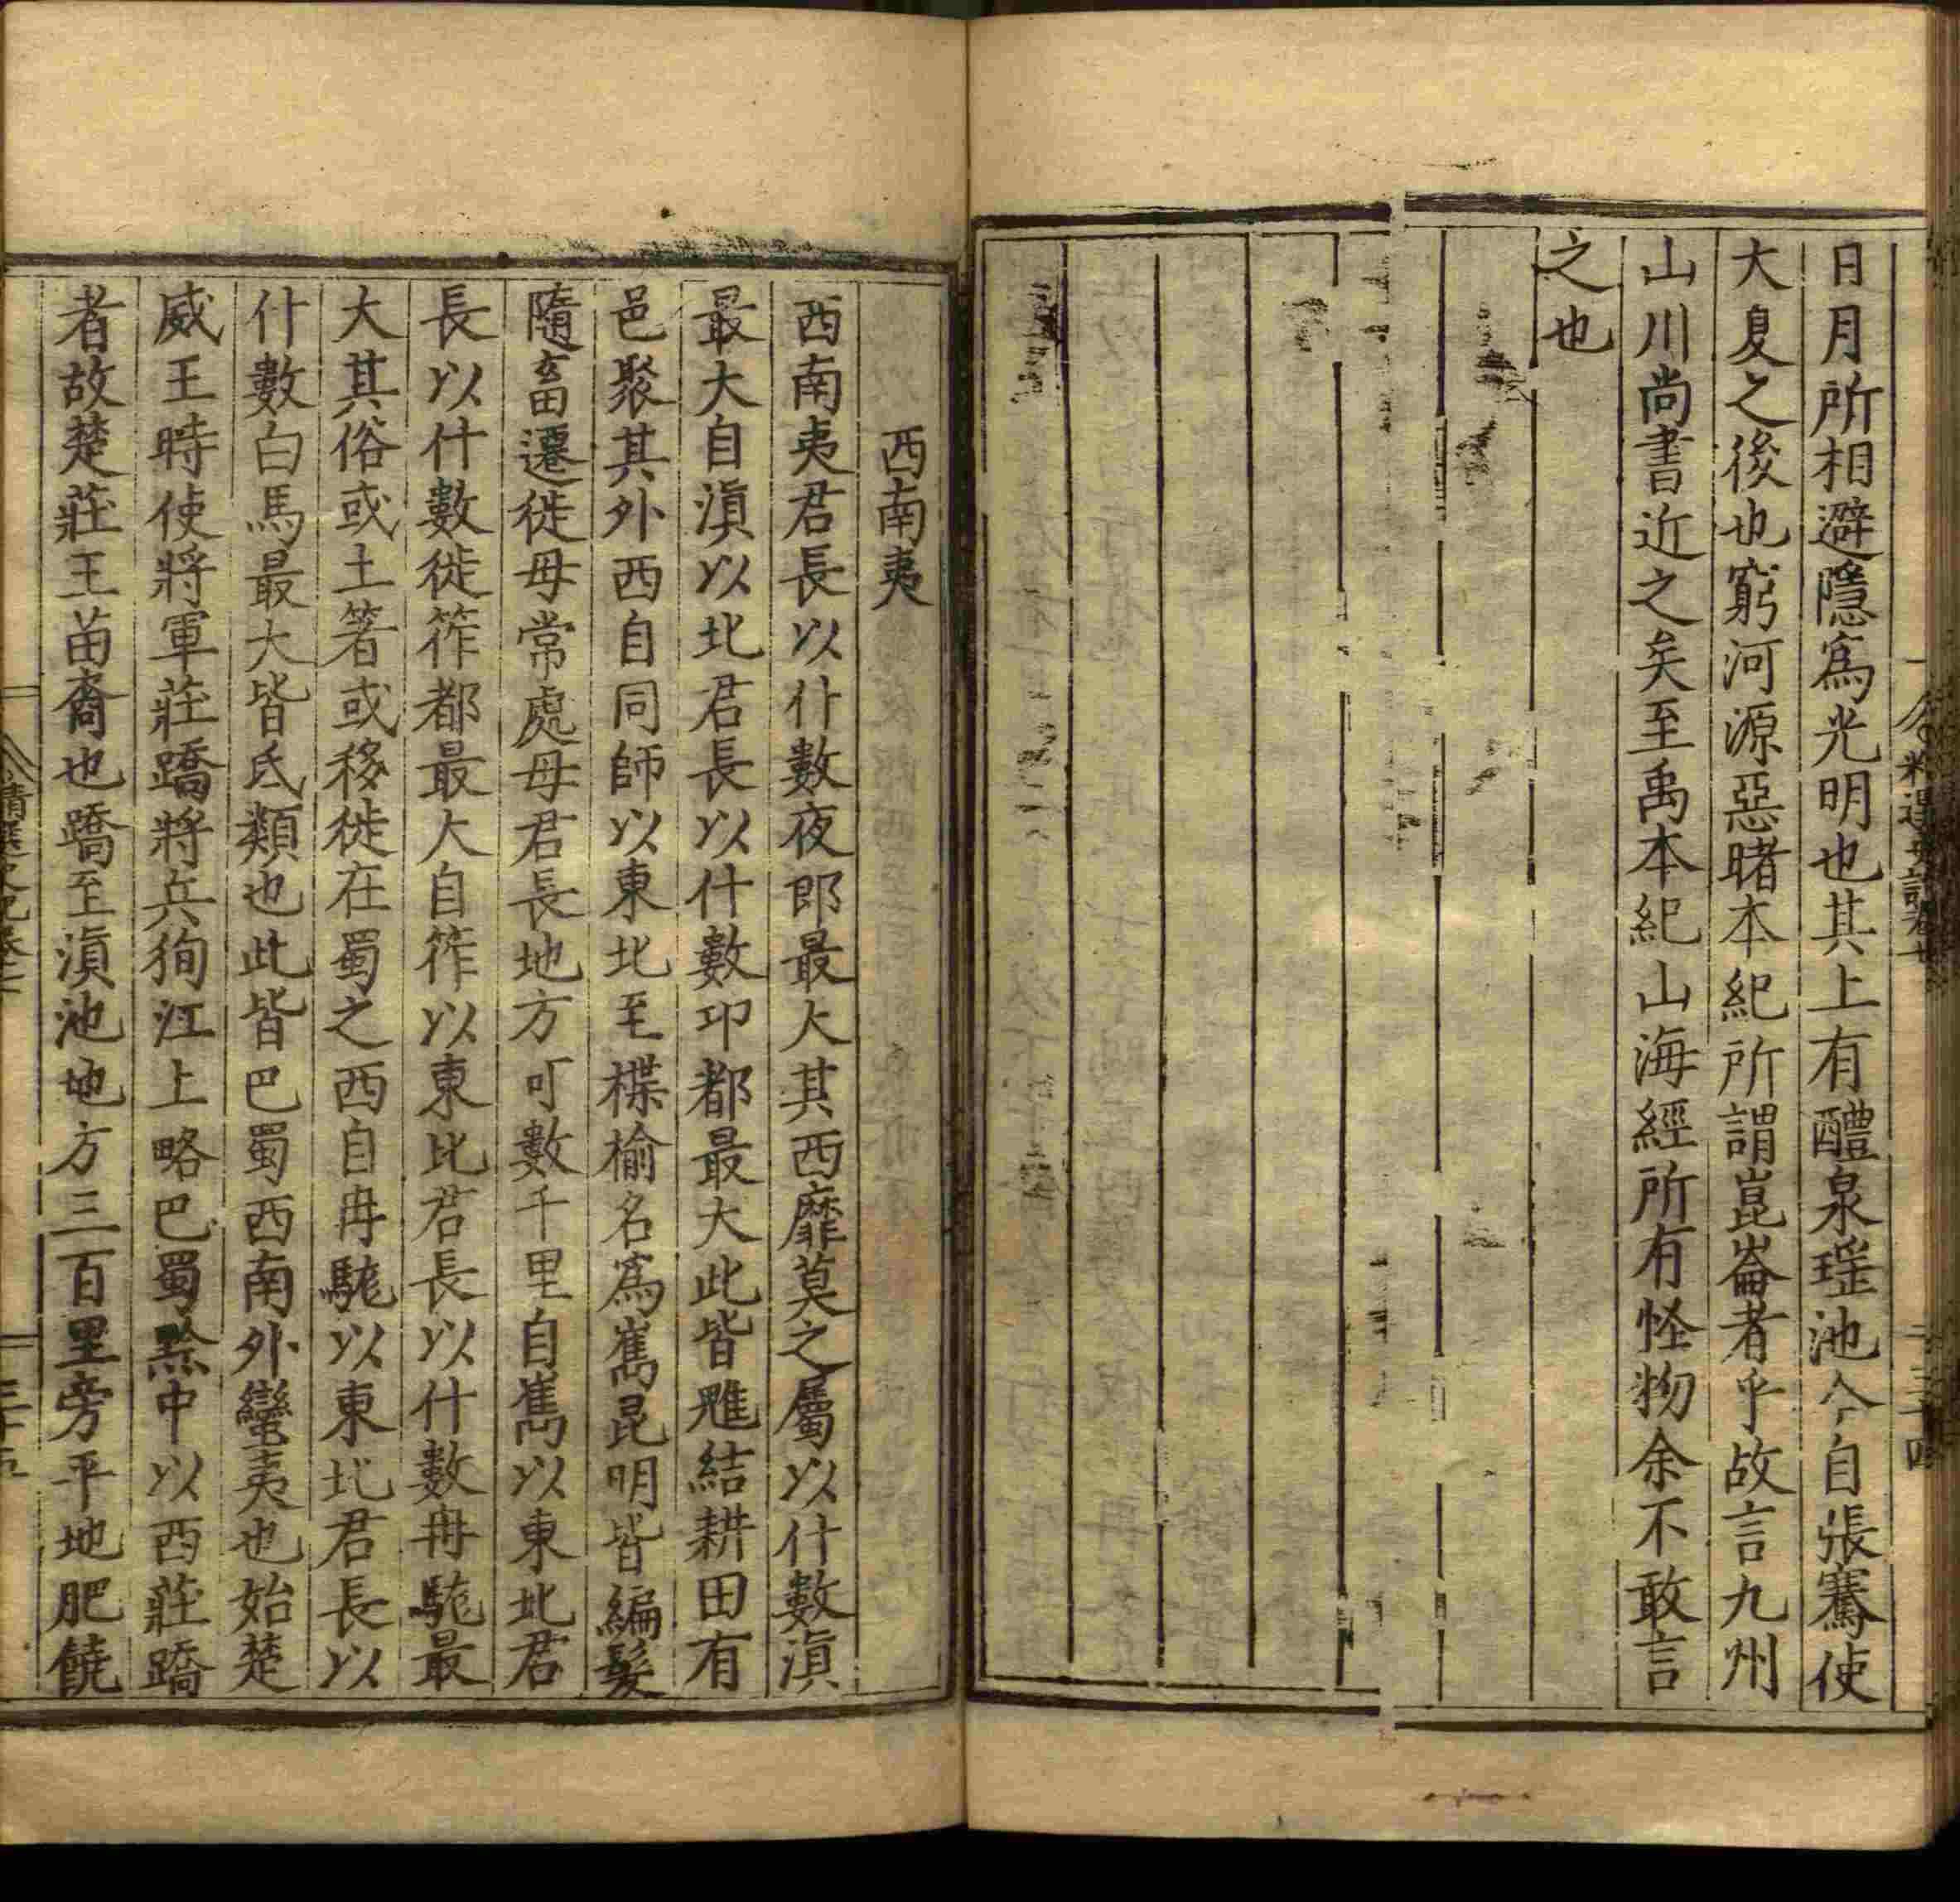 日月所相避隱爲光明也其上有醴泉瑶池今自張騫使
大夏之後也窮河源惡睹本紀所謂崑崙者乎故言九州
山川尚書近之矣至禹本紀山海經所有怪物余不敢言
之也
西南夷
西南夷君長以什數夜郎最大其西靡莫之屬以什數滇
最大自滇以北君長以什數卭都最大此皆魋結耕田有
邑聚其外西自同師以東北至楪榆名爲嶲昆明皆編髮
隨畜遷徙毋常處毋君長地方可數千里自嶲以東北君
長以什數徙筰都最大自筰以東北君長以什數冉駹最
大其俗或土箸或移徙在蜀之西自冉駹以東北君長以
什數白馬最大皆氐類也此皆巴蜀西南外蠻夷也始楚
威王時使將軍莊蹻將兵狥江上略巴蜀黔中以西莊蹻
者故楚莊王苗裔也蹻至滇池地方三百里旁平地肥饒